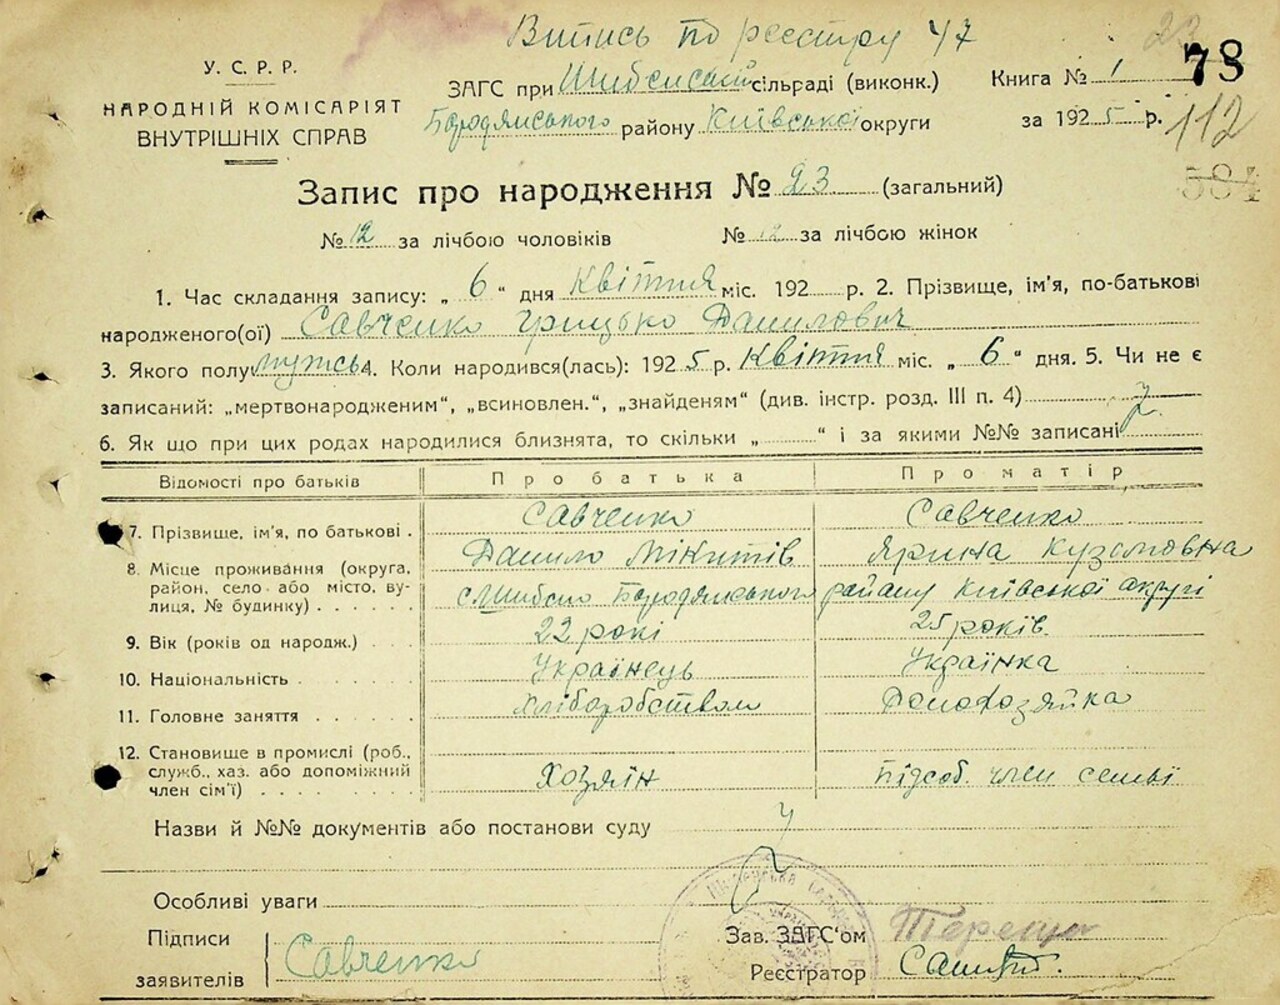 Витись по реєстру 47
У. С. Р. Р.
НАРОДНІЙ КОМІСАРІЯТ
ВНУТРІШНІХ СПРАВ
ЗАГС при Шибенській сільраді (виконк.)
Бородянського району Київської округи
Книга № 1
за 1925 р.
78
112
584
Запис про народження № 23 (загальний)
№ 12 за лічбою чоловіків № 12 за лічбою жінок
1. Час складання запису: „ 6 “ дня Квітня міс. 192 р. 2. Прізвище, ім'я, по-батькові
народженого(ої) Савченко Грицько Данилович
3. Якого полу мужеь 4. Коли народився(лась): 1925 р. Квітня міс. „ 6 “ дня. 5. Чи не є
записаний: „мертвонародженим“, „всиновлен.“, „знайденям“ (див. інстр. розд. III п. 4)
6. Як що при цих родах народилися близнята, то скільки „ “ і за якими №№ записані
Відомості про батьків Про батька Про матір
7. Прізвище, ім'я, по батькові . Савченко Савченко
Данило Мікитів Ярина Кузьмовна
8. Місце проживання (округа, район, село або місто, ву-
лиця, № будинку) с. Шибено Бородянського району Київської округі
9. Вік (років од народж.) 22 рокі 25 років
10. Національність Українець Українка
11. Головне заняття Хліборобством Домохозяйка
12. Становище в промислі (роб.,
служб., хаз. або допоміжний Хозяїн підсоб. член семьї
член сім'ї)
Назви й №№ документів або постанови суду
Особливі уваги
Підписи
заявителів Савченко
Зав. ЗАГС'ом Терещ
Реєстратор